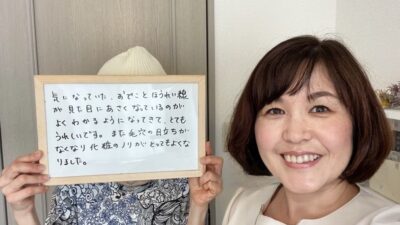 気になっていた、おでことほうれい線
が見た目にあさくなっているのが
よくわかるようになってきて、とても
うれしいです。また毛穴の目立ちが
なくなり化粧のノリがとってもよくな
りました。